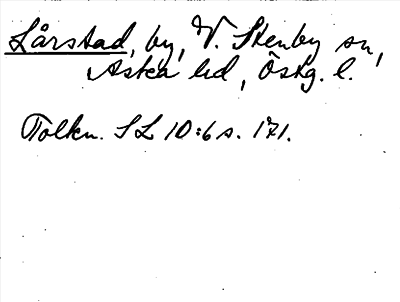 Lårstad, by, V. Stenby sn,
Aska hd, Östg. l.
Tolkn. SL 10:6 s. 171.